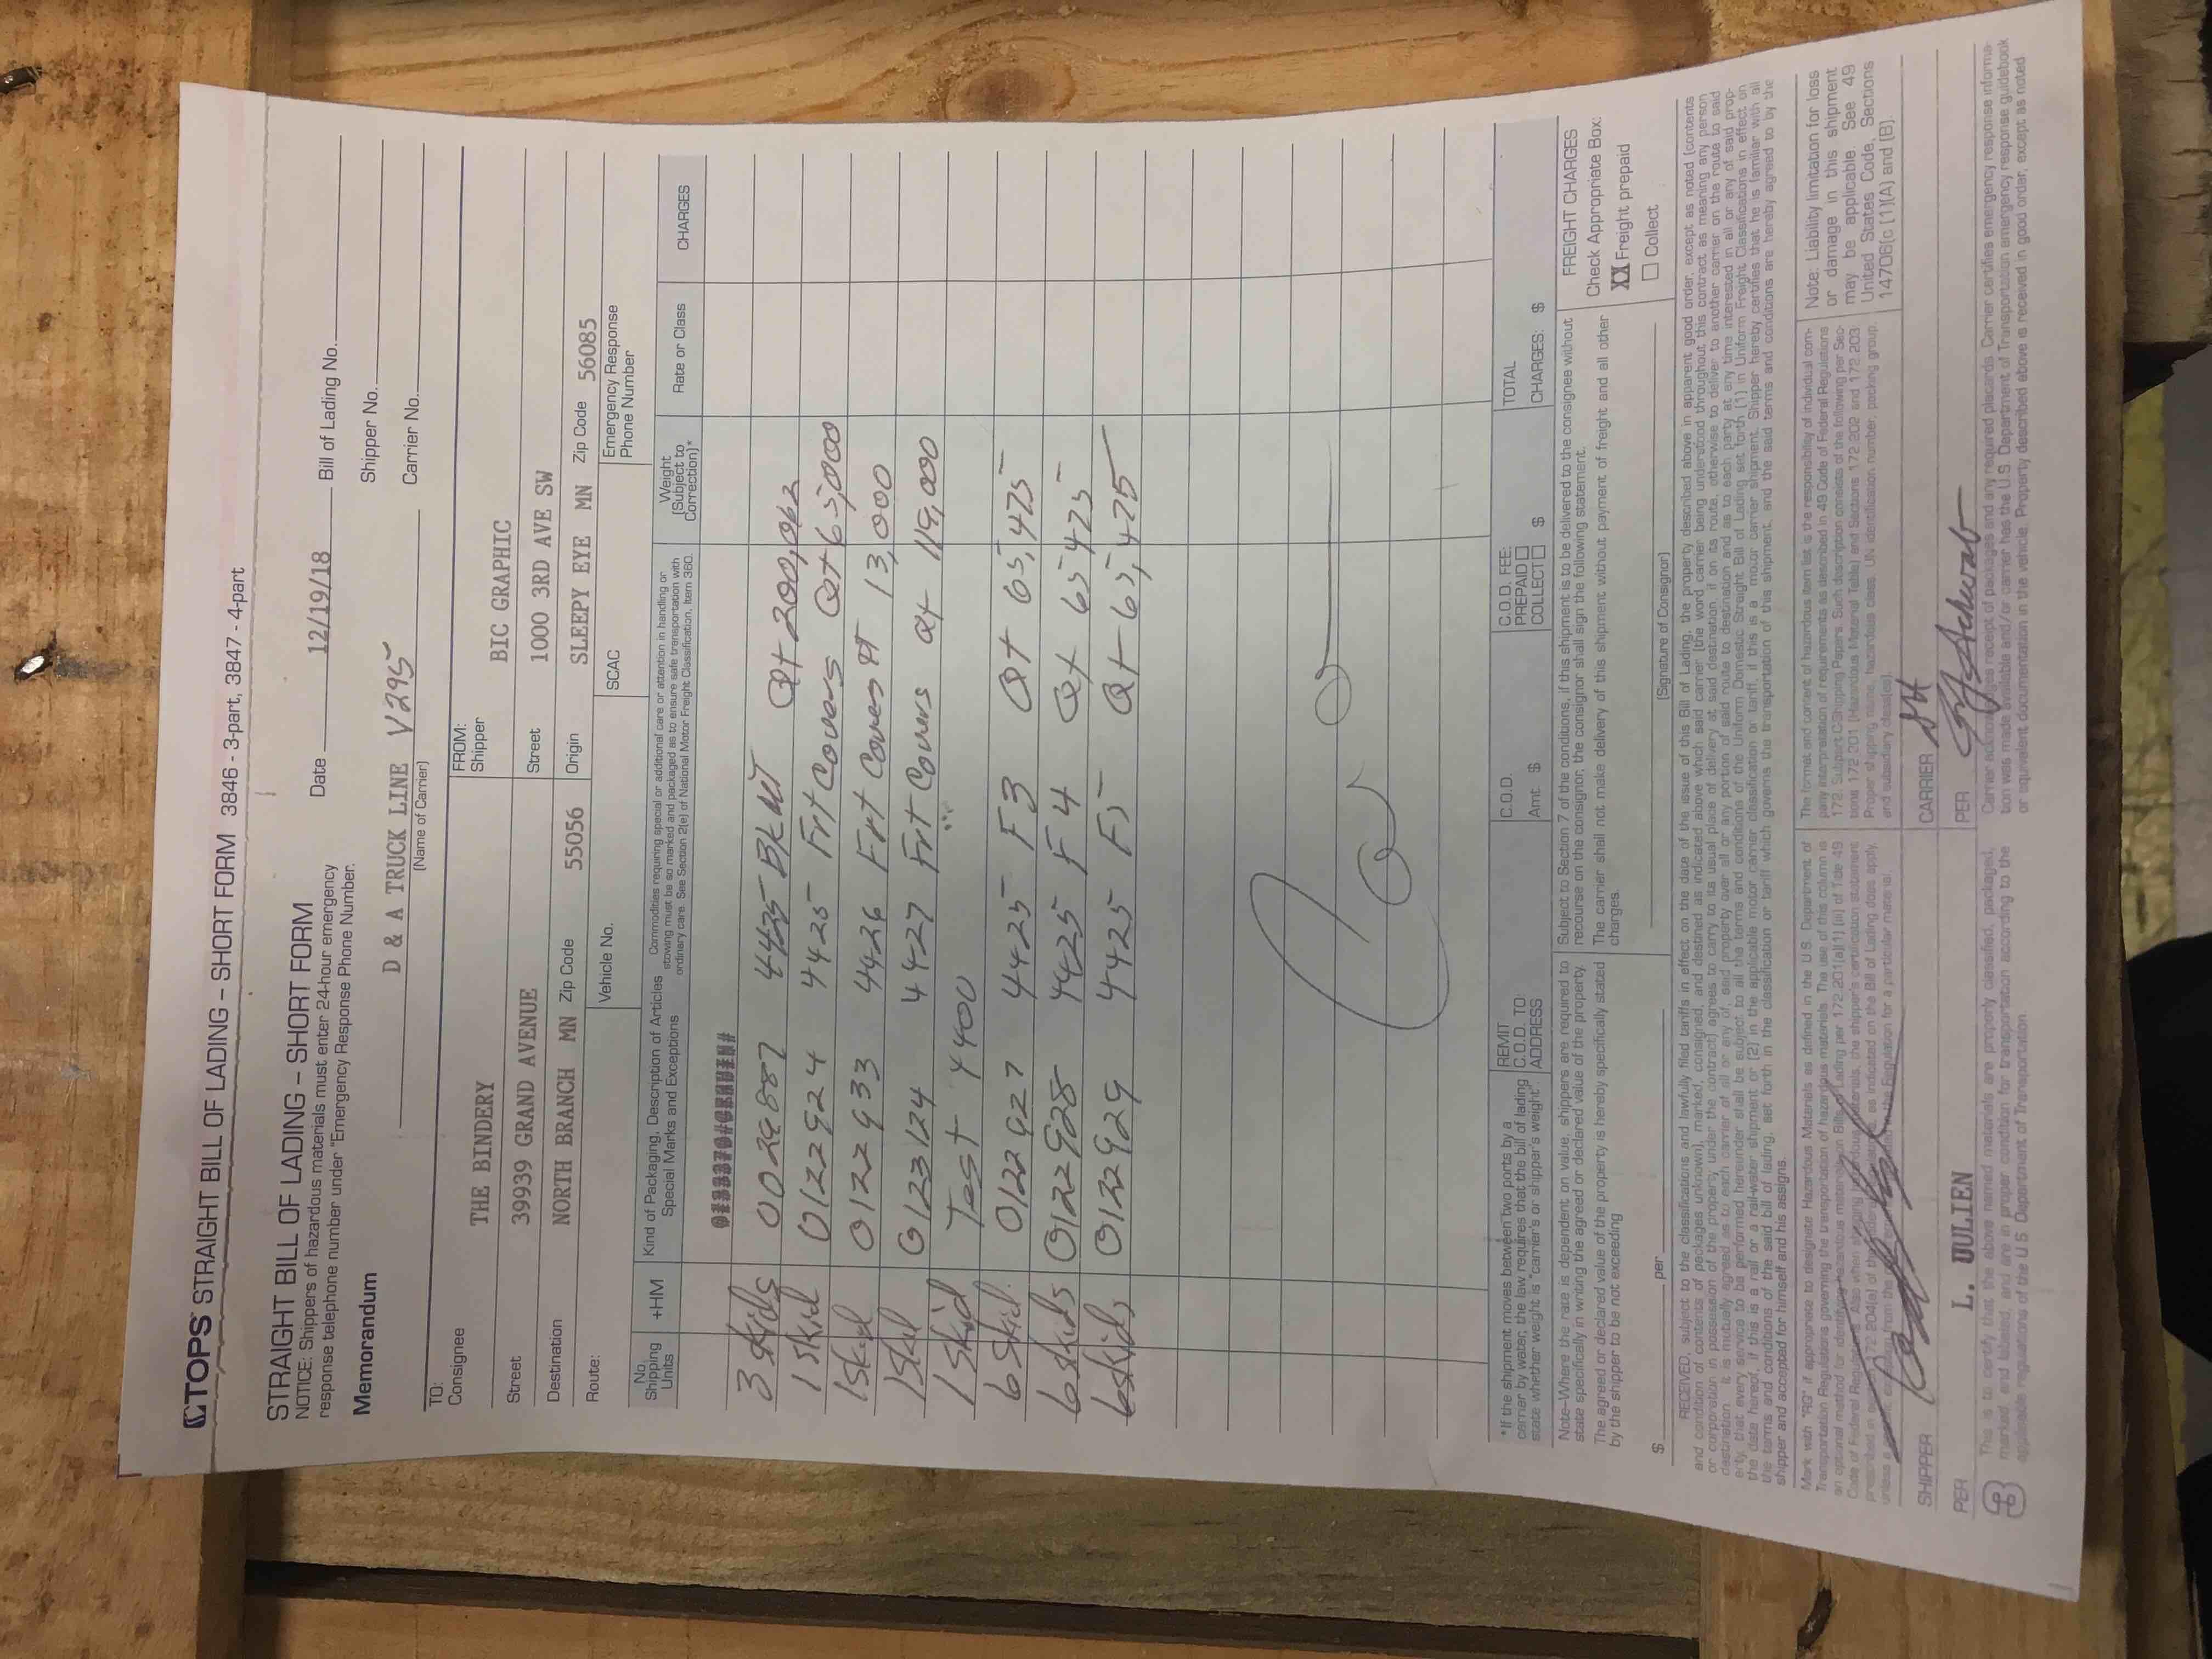 TOPS STRAIGHT BILL OF LADING – SHORT FORM 3846 - 3-part, 3847 - 4-part
STRAIGHT BILL OF LADING – SHORT FORM
NOTICE: Shippers of hazardous materials must enter 24-hour emergency
response telephone number under "Emergency Response Phone Number.
Memorandum
Date 12/19/18 Bill of Lading No.
Shipper No.
D & A TRUCK LINE V295 Carrier No.
(Name of Carrier)
TO:
Consignee THE BINDERY
FROM:
Shipper BIC GRAPHIC
Street 39939 GRAND AVENUE
Street 1000 3RD AVE SW
Destination NORTH BRANCH MN Zip Code 55056
Origin SLEEPY EYE MN Zip Code 56085
Route:
Vehicle No.
SCAC
Emergency Response
Phone Number
No.
Shipping
Units
+HM
Kind of Packaging, Description of Articles
Special Marks and Exceptions
Commodities requiring special or additional care or attention in handling or
stowing must be so marked and packaged as to ensure safe transportation with
ordinary care. See Section 2(e) of National Motor Freight Classification, Item 360.
Weight
(Subject to
Correction)*
Rate or Class
CHARGES
3 skids 4425 Qt 200,062
1 skid 0122924 4425 Frt Covers Qt 65,000
1 skid 0122933 4426 Frt Covers 13,000
1 skid 0123124 4427 Frt Covers Qt 119,000
1 skid Test 4400
6 skid 0122927 4425 F3 Qt 65,425
6 skids 0122928 4425 F4 Qt 65,425
6 skids 0122929 4425 F5 Qt 65,425
*If the shipment moves between two ports by a
carrier by water, the law requires that the bill of lading
state whether weight is "carrier's or shipper's weight".
REMIT
C.O.D. TO:
ADDRESS
C.O.D.
Amt. $
C.O.D. FEE:
PREPAID
COLLECT $
TOTAL
CHARGES: $
Note–Where the rate is dependent on value, shippers are required to
state specifically in writing the agreed or declared value of the property.
The agreed or declared value of the property is hereby specifically stated
by the shipper to be not exceeding
$ per
Subject to Section 7 of the conditions, if this shipment is to be delivered to the consignee without
recourse on the consignor, the consignor shall sign the following statement.
The carrier shall not make delivery of this shipment without payment of freight and all other
charges.
(Signature of Consignor)
FREIGHT CHARGES
Check Appropriate Box:
XX Freight prepaid
Collect
RECEIVED, subject to the classifications and lawfully filed tariffs in effect on the date of the issue of this Bill of Lading, the property described above in apparent good order, except as noted (contents
and condition of contents of packages unknown), marked, consigned, and destined as indicated above which said carrier (the word carrier being understood throughout this contract as meaning any person
or corporation in possession of the property under the contract) agrees to carry to its usual place of delivery at said destination, if on its route, otherwise to deliver to another carrier on the route to said
destination. It is mutually agreed as to each carrier of all or any of, said property over all or any portion of said route to destination and as to each party at any time interested in all or any of said prop-
erty, that every service to be performed hereunder shall be subject to all the terms and conditions of the Uniform Domestic Straight Bill of Lading set forth (1) in Uniform Freight Classifications in effect on
the date hereof, if this is a rail or a rail-water shipment or (2) in the applicable motor carrier classification or tariff, if this is a motor carrier shipment. Shipper hereby certifies that he is familiar with all
the terms and conditions of the said bill of lading, set forth in the classification or tariff which governs the transportation of this shipment, and the said terms and conditions are hereby agreed to by the
shipper and accepted for himself and his assigns.
Mark with "RQ" if appropriate to designate Hazardous Materials as defined in the U.S. Department of
Transportation Regulations governing the transportation of hazardous materials. The use of this column is
The format and content of hazardous item list is the responsibility of individual com-
pany interpretation of requirements as described in 49 Code of Federal Regulations
172, Subpart C-Shipping Papers. Such description consists of the following per Sec-
tions 172.201 (Hazardous Material Table) and Sections 172.202 and 172.203:
Proper shipping name, hazardous class, UN identification number, packing group,
and subsidiary class(es).
Note: Liability limitation for loss
or damage in this shipment
may be applicable. See 49
United States Code, Sections
14706(c (1)(A) and (B).
SHIPPER
CARRIER
PER L. JULIEN
PER
This is to certify that the above named materials are properly classified, packaged,
marked and labeled, and are in proper condition for transportation according to the
applicable regulations of the U.S. Department of Transportation.
Carrier acknowledges receipt of packages and any required placards. Carrier certifies emergency response informa-
tion was made available and/or carrier has the U.S. Department of Transportation emergency response guidebook
or equivalent documentation in the vehicle. Property described above is received in good order, except as noted